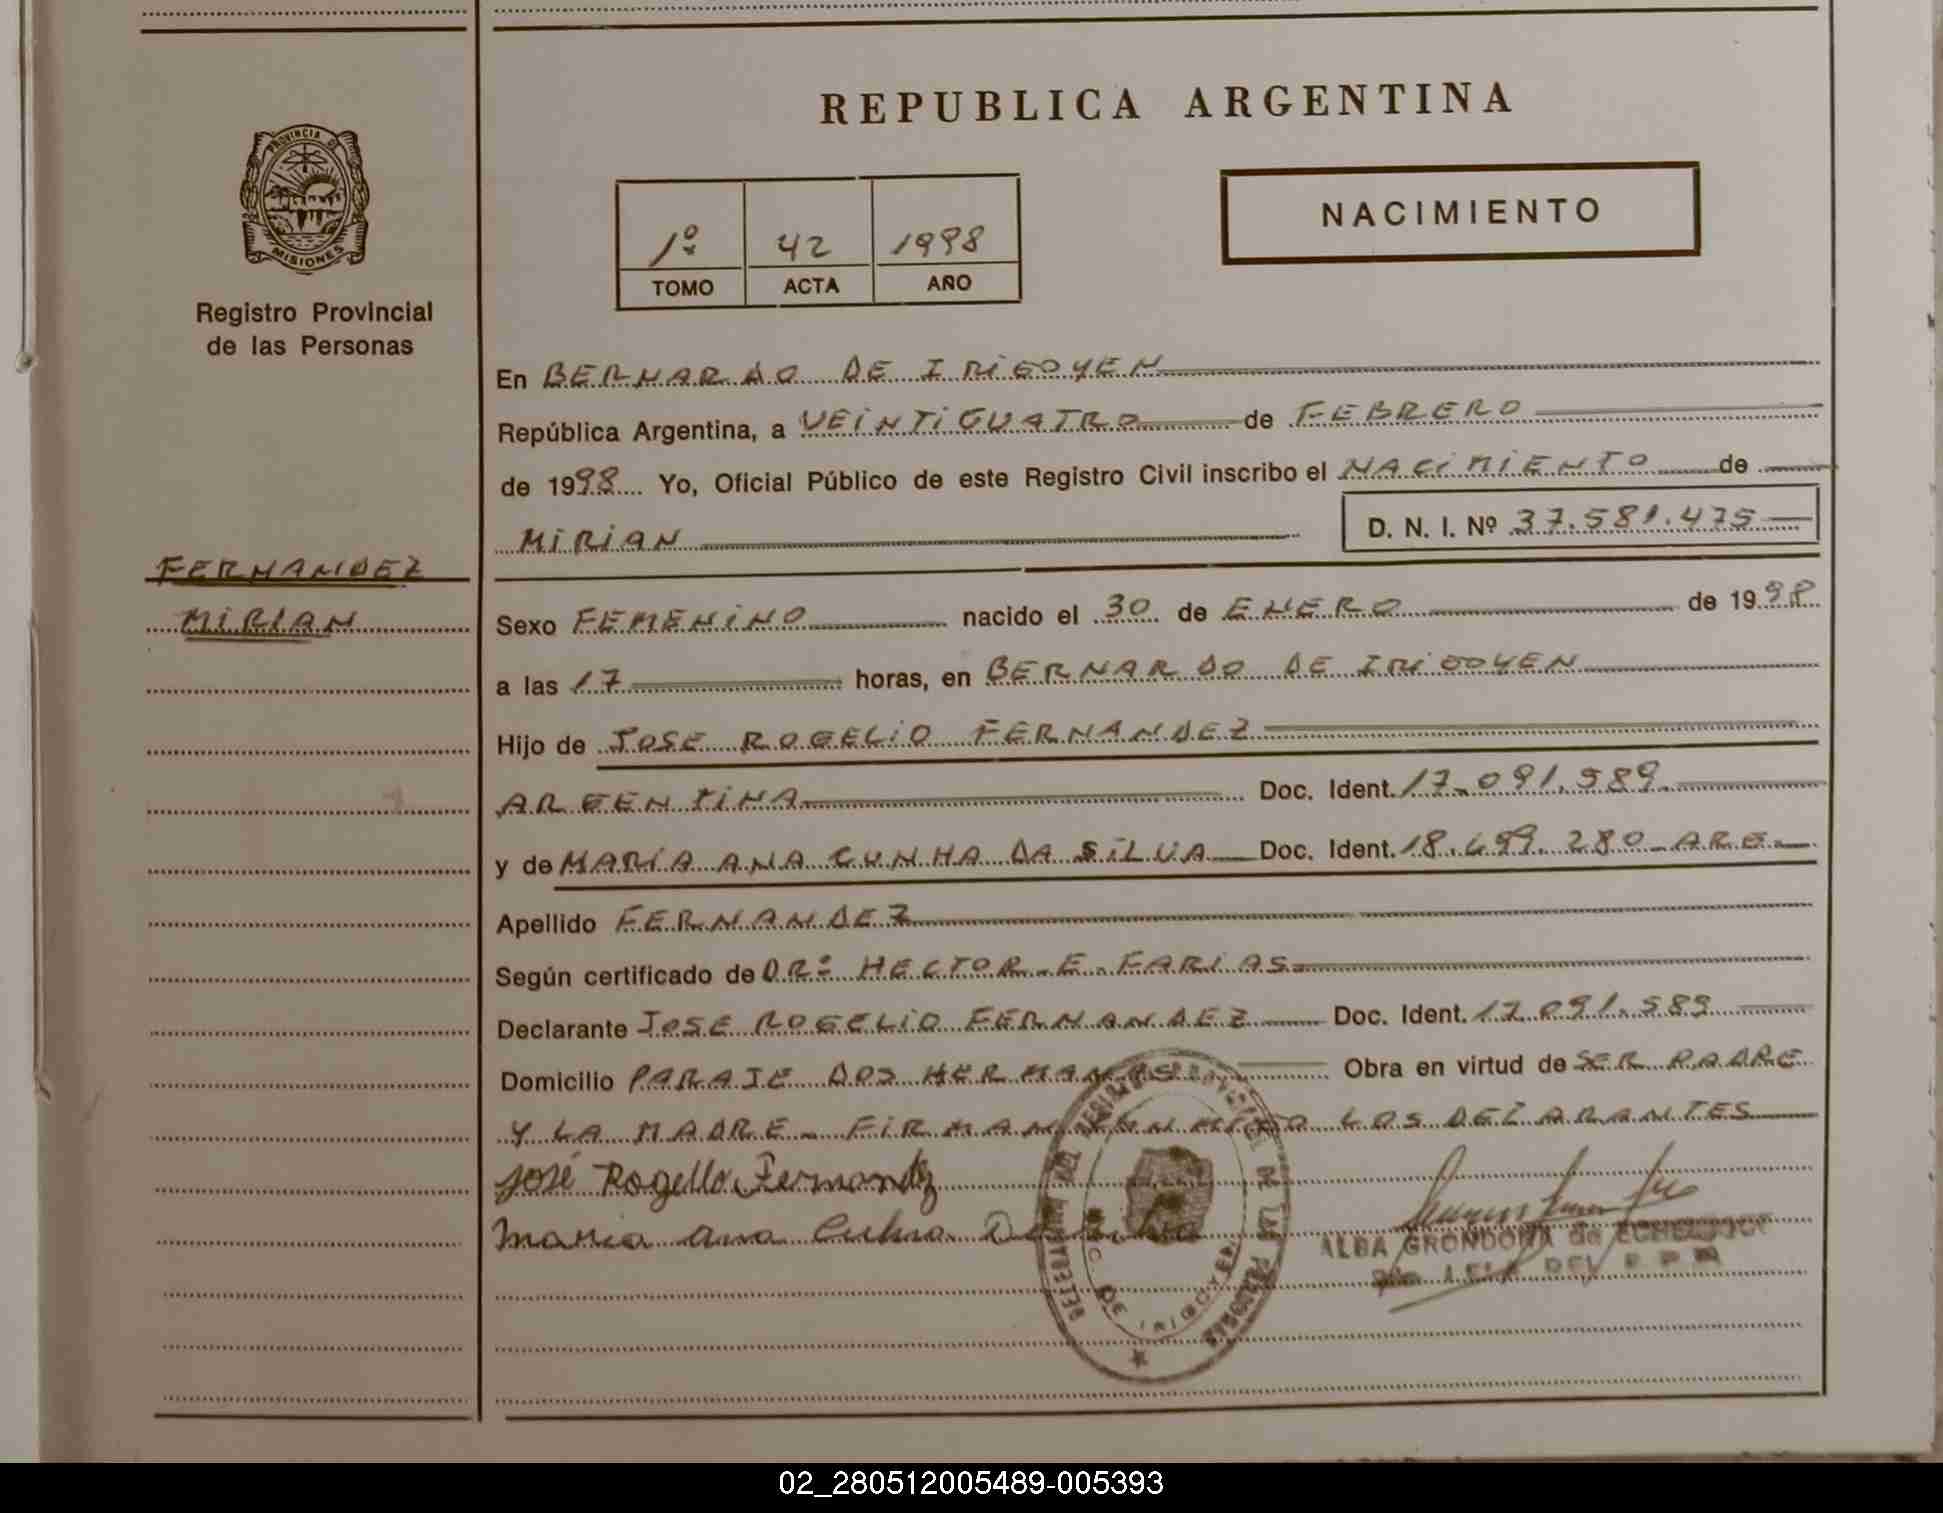 REPUBLICA ARGENTINA
PROVINCIA DE
MISIONES
Registro Provincial
de las Personas
1º 42 1998
TOMO ACTA AÑO
NACIMIENTO
En BERNARDO DE IRIGOYEN
República Argentina, a VEINTICUATRO de FEBRERO
de 1998 Yo, Oficial Público de este Registro Civil inscribo el NACIMIENTO de
MIRIAN D. N. I. Nº 37.581.475
FERNANDEZ
MIRIAN
Sexo FEMENINO nacido el 30 de ENERO de 1998
a las 17 horas, en BERNARDO DE IRIGOYEN
Hijo de JOSE ROGELIO FERNANDEZ
ARGENTINA Doc. Ident. 17.091.589
y de MARIA ANA CUNHA DA SILVA Doc. Ident. 18.499.280 ARG.
Apellido FERNANDEZ
Según certificado de DRº HECTOR E. FARIAS
Declarante JOSE ROGELIO FERNANDEZ Doc. Ident. 17.091.589
Domicilio PARAJE DOS HERMANAS Obra en virtud de SER PADRE
Y LA MADRE. FIRMAN LOS DECLARANTES
José Rogelio Fernandez
Maria Ana Da
ALBA GRONDONA de
DE LAS PERSONAS
DE IRIGOYEN
02_280512005489-005393